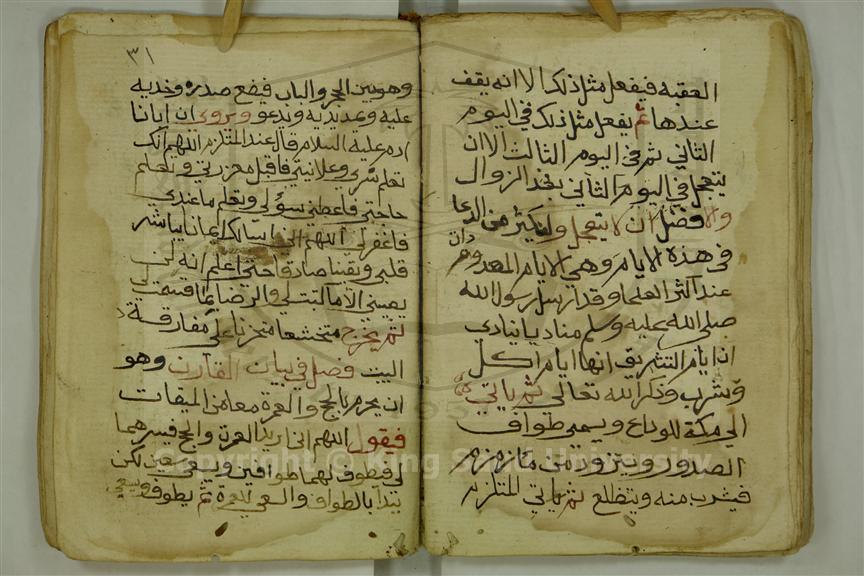 العقبة فيفعل مثل ذلك الا انه يقف
عندها ثم يفعل مثل ذلك في اليوم
الثاني ثم في اليوم الثالث الا ان
يتعجل في اليوم الثاني بعد الزوال
والافضل ان لا يتعجل وليكثر من الدعا
في هذه الايام وهي الايام المعدودات
عند اكثر العلما وقد ارسل رسول الله
صلى الله عليه وسلم مناديا ينادي
ان ايام التشريق انها ايام اكل
وشرب وذكر الله تعالى ثم ياتي
الى مكة للوداع ويسمى طواف
الصدور ويتزود من ماء زمزم
فيشرب منه ويتطلع ثم ياتي الملتزم
٣١
وهو بين الحجر والباب فيضع صدره وخديه
عليه ويمد يديه ويدعو ويروى ان ابانا
ادم عليه السلام قال عند الملتزم اللهم انك
تعلم سري وعلانيتي فاقبل معذرتي وتعلم
حاجتي فاعطني سؤلي وتعلم ما عندي
فاغفر لي اللهم اني اسالك ايمانا يباشر
قلبي ويقينا صادقا حتى اعلم انه لن
يصيبني الا ما كتبت لي والرضا بما قسمت لي
ثم يخرج متخشعا متحزنا على مفارقة
البيت فصل في بيان القارن وهو
ان يحرم بالحج والعمرة معا من الميقات
فيقول اللهم اني اريد العمرة والحج فيسرهما
لي فيطوف لهما طوافين ويسعى سعيين لكن
يبدا بالطواف والسعي للعمرة ثم يطوف ويسعى
Copyright © King Saud University
1957